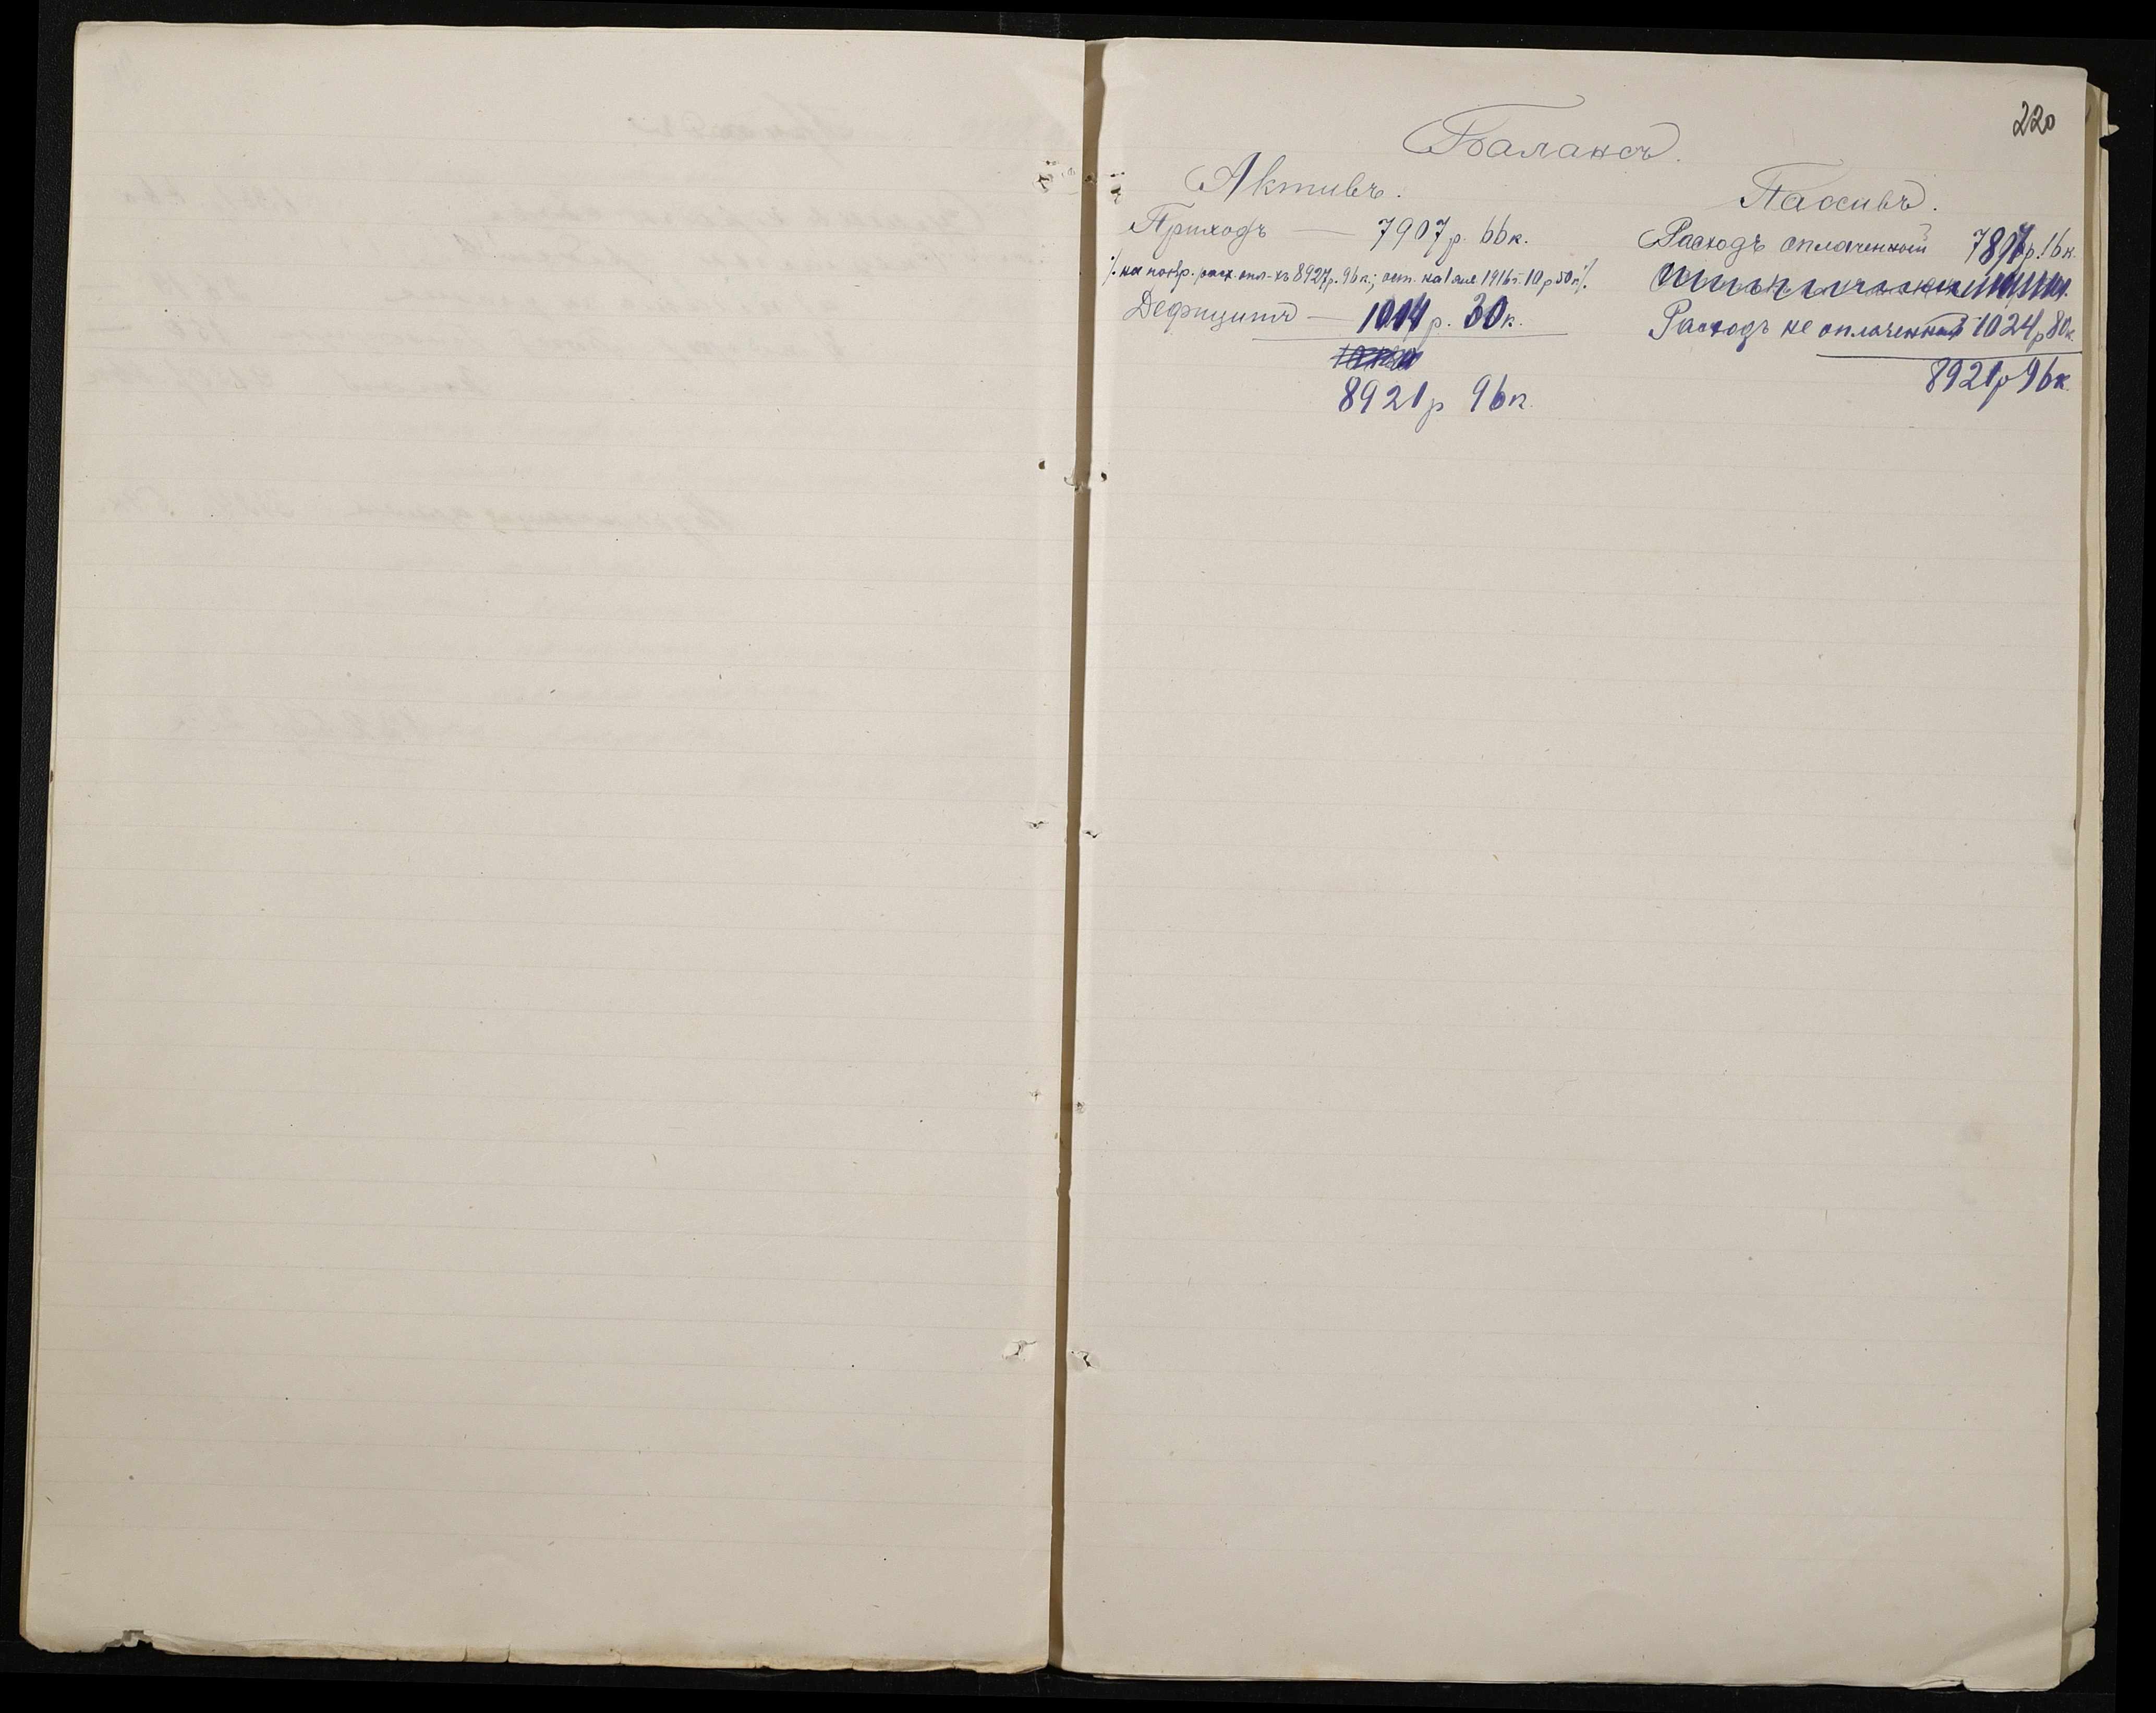 220
Балансъ.
Активъ.
Приходъ — 7907 р. 66 к.
на покр. расх. опл-хъ 8927 р. 96 к.; ост. на 1 янв 1916 г. 10 р 50 к
Дефицитъ — 1014 р. 30 к.
8921 р 96 к.
Пассивъ.
Расходъ оплаченный 7897 р. 16 к.
Расходъ не оплаченный 1024 р 80 к
8921 р 96 к.